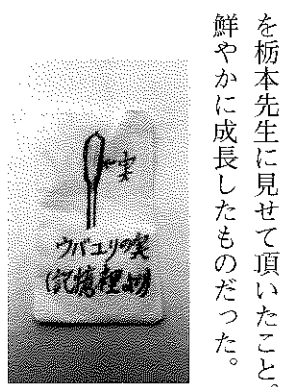 を栃本先生に見せて頂いたこと。
鮮やかに成長したものだった。
実
ウバユリの実